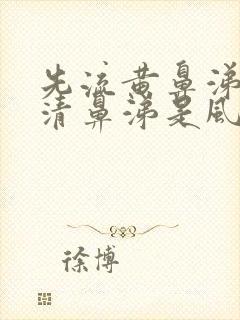 先流黄鼻涕
清鼻涕是风
徐博